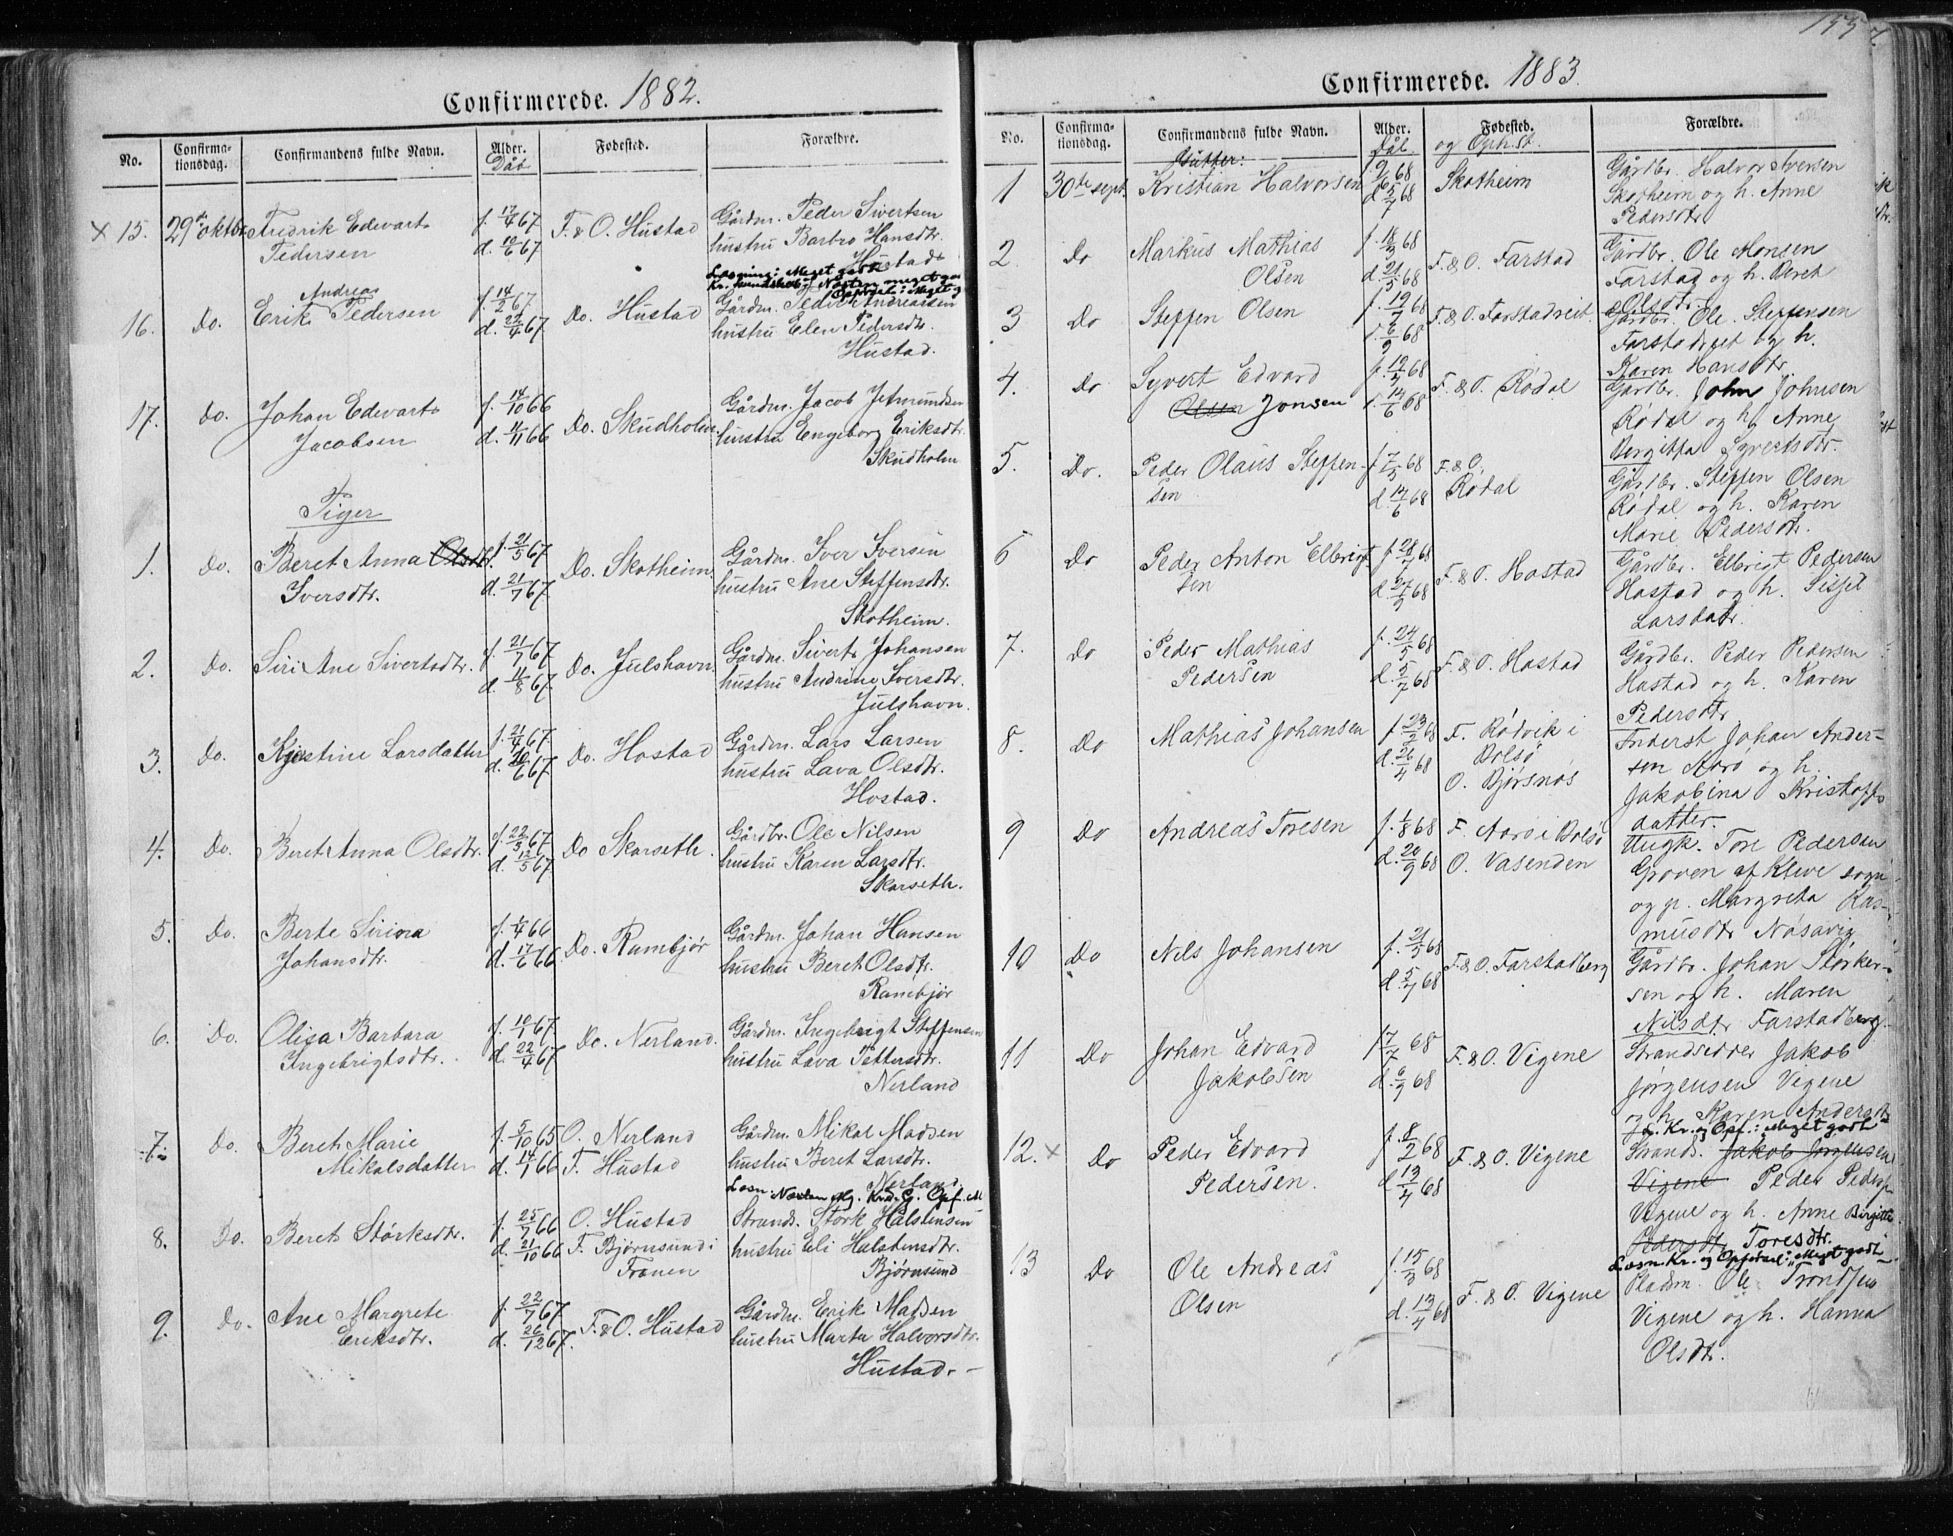 Confirmerede. 1882.
No. Confirmationsdag. Confirmandens fulde Navn. Alder. Dåb Fødested. Forældre.
x 15. 29de oktbr. Fredrik Edevart f. 17/4 67 F. & O. Hustad Gårdm. Peder Sivertsen
Pedersen d. 10/6 67 hustru Barbro Hansdtr.
Hustad
Læsning: Meget godt
Andreas
16. Do. Erik Pedersen f. 14/2 67 Do. Hustad Gårdm. Peder Andreassen
d. 22/4 67 hustru Elen Pedersdtr.
Hustad.
17. Do. Johan Edevart f. 14/10 66 Do. Skudholm. Gårdm. Jacob Jetmundsen
Jacobsen d. 4/11 66 hustru Engeborg Eriksdtr.
Skudholm
Piger
1. Do. Beret Anna Olsdtr. f. 21/5 67 Do. Skotheim. Gårdm. Iver Iversen
Iversdtr. d. 21/7 67 hustru Ane Steffensdtr.
Skotheim.
2. Do. Siri Ane Sivertsdtr. f. 21/7 67 Do. Julshavn. Gårdm. Sivert Johansen
d. 11/8 67 hustru Andrine Iversdtr.
Julshavn.
3. Do. Kjestine Larsdatter f. 21/4 67 Do. Hostad Gårdm. Lars Larsen
d. 10/6 67 hustru Lava Olsdtr.
Hostad.
4. Do. Beret Anna Olsdtr. f. 22/3 67 Do Skarseth. Gårdbr. Ole Nilsen
d. 12/5 67 hustru Karen Larsdtr.
Skarseth.
5. Do. Berte Sirina f. 1/4 66 Do. Rambjør Gårdm. Johan Hansen
Johansdtr. d. 17/6 66. hustru Beret Olsdtr.
Rambjør
6. Do. Olisa Barbara f. 10/1 67 Do. Nerland. Gårdm. Ingebrigt Steffensen
Ingebrigtsdtr. d. 22/4 67 hustru Lava Pettersdtr.
Nerland
7. Do. Beret Marie f. 5/10 65 O. Nerland Gårdm. Mikal Madsen
Mikalsdatter d. 14/1 66 F. Hustad hustru Beret Larsdtr.
Nerland
8. Do. Beret Størksdtr. f. 25/7 66 O. Hustad Strands. Størk Halstensen
d. 21/10 66 F. Bjørnsund i hustru Eli Halstensdtr.
Franen Bjørnsund
9. Do. Ane Margrete f. 22/7 67 F. & O. Hustad Gårdm. Erik Madsen
Eriksdtr. d. 26/12 67. hustru Marta Halvorsdtr.
Hustad.
Confirmerede. 1883.
No. Confirmationsdag. Confirmandens fulde Navn. Alder. Dåb. Fødested. og Oph.st. Forældre.
Gutter:
1 30te sept. Kristian Halvorsen f. 9/6 68 Skotheim Gårdbr. Halvor Iversen
d. 5/7 68 Skotheim og h. Anne
Pedersdtr
2. Do Markus Mathias f. 18/3 68 F. & O. Farstad Gårdbr. Ole Monsen
Olsen d. 21/5 68 Farstad og h. Beret
Olsdtr.
3 Do Steffen Olsen f. 19/7 68 F. & O. Farstadreit. Gårdbr. Ole Steffensen
d. 6/9 68 og h.
Karen Hansdtr.
4. Do Syvert Edvard F. & O. Rødal Gårdbr. John Johnsen
Olsen Jonsen d. 14/6 68 Rødal og h. Anne
Bergitta Syvertsdtr.
5. Do. Peder Olaus Steffen- f. 7/5 68 F. & O. Gårdbr. Steffen Olsen
sen d. 14/6 68 Rødal Rødal og h. Karen
Marie Pedersdtr.
6 Do Peder Anton Elbrigt- F. & O. Hostad Gårdbr. Elbrigt Pedersen
sen d. 27/9 68 Hostad og h. Sissel
Larsdatr.
7. Do Peder Mathias f. 24/5 68 F. & O. Hostad Gårdbr. Peder Pedersen
Pedersen d. 5/7 68 Hostad og h. Karen
Pedersdtr
8. Do Mathias Johansen f. 23/2 68 F. Rødvik i Inderst Johan Ander-
d. 26/4 68 Bolsø sen Aarø og h.
O. Bjørsnøs Jakobina Kristoffs
datter.
9 Do Andreas Toresen f. 1/8 68 F. Aarø i Bolsø Ungk. Tore Pedersen
d. 20/9 68 O. Vasenden Groven af Kleve sogn
og p. Margreta Ras-
musdtr Nøsavig
10 Do Nils Johansen f. 21/5 68 F. & O. Farstadberg Gårdbr. Johan Størker-
d. 5/7 68 sen og h. Maren
Nilsdtr Farstadberg
11 Do Johan Edvard 17/7 68 F. & O. Vigene Strandsidder Jakob
Jakobsen d. 6/9 68 Jørgensen Vigene
og h. Karen Andersdtr
Kr. og Opf.: Meget godt
12. x Do Peder Edvard f. 8/2 68 F. & O. Vigene Strands. Jakob Jørgensen
Pedersen. d. 13/4 68 Vigene Peder Peders.
Vigene og h. Anne Birgitte
Pedersdtr Toresdtr.
Læsn. Kr. og Opførsel: Meget godt
13 Do Ole Andreas f. 15/3 68 F. & O. Vigene Pladsm. Ole Trondsen
Olsen d. 13/4 68 Vigene og h. Hanna
Olsdtr.